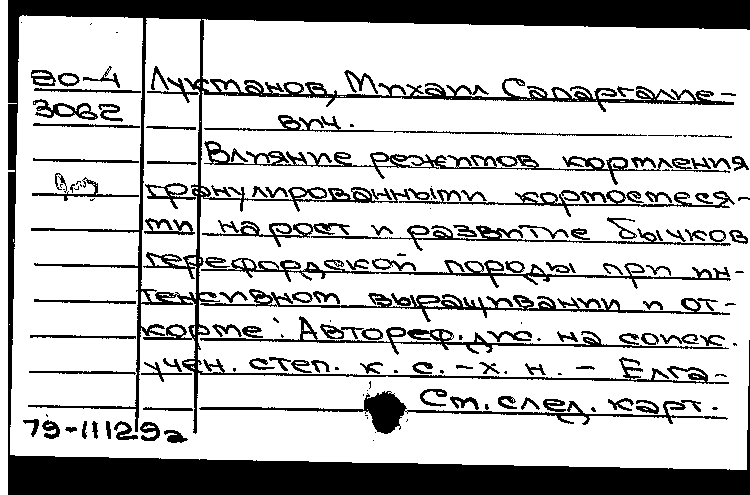 80-4 Лукманов, Михаил Сапаргалие-
3062 вич.
Влияние режимов кормления
гранулированными кормосмеся-
ми на рост и развитие бычков
герефордской породы при ин-
тенсивном выращивании и от-
корме: Автореф. дис. на соиск.
учен. степ. к. с.-х. н. - Елга-
См. след. карт.
79-11129а